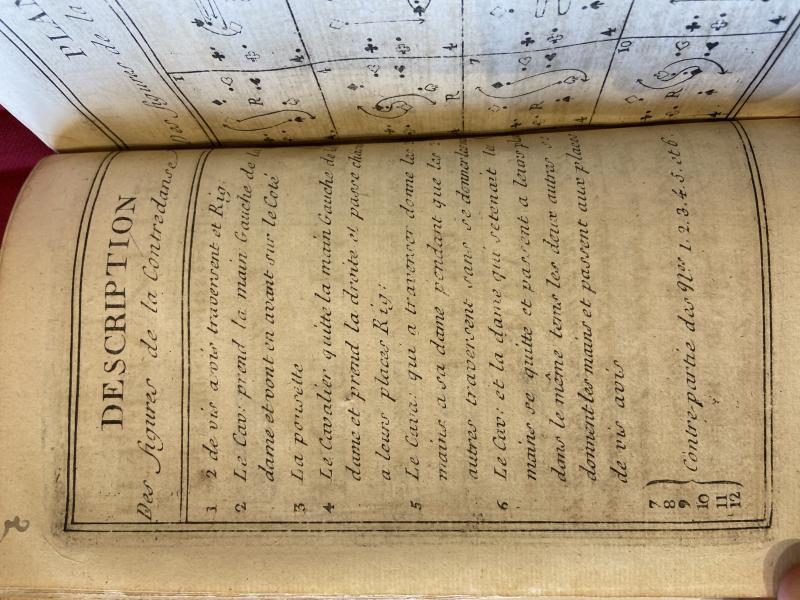 DESCRIPTION
Des figures de la Contredanse
1 2 de vis a vis traversent et Rig:
2 Le Cav: prend la main Gauche de
dame et vont en avant sur le Coté
3 La pousette
4 Le Cavalier quitte la main Gauche de
dame et prend la droite et passe
a leurs places Rig:
5 Le Cava: qui a traverser donne les
mains a sa dame pendant que les
autres traversent sans se donner
6 Le Cav: et la dame qui se tenait le
mains se quitte et passent a leurs
dans le même tems les deux autres
donnent les mains et passent aux places
de vis avis
7
8
9 Contre-partie des Nos 1. 2. 3. 4. 5. et 6.
10
11
12
PLAN
Des figures de la
1
4
R
4
R
4
7
R
4
10
4
R
4